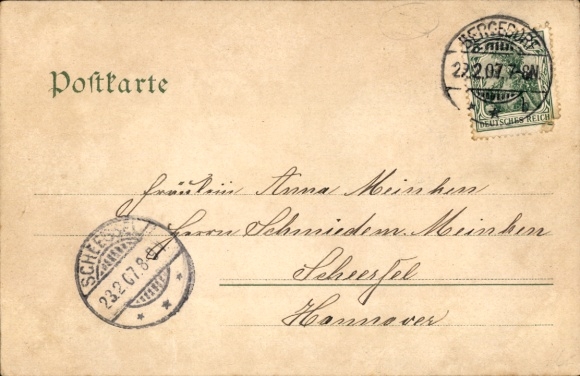 BERGEDORF
22.2.07.7-8N
DEUTSCHES REICH
Postkarte
Fräulein Anna Meinken
Herrn Schmiedem. Meinken
Scheeßel
Hannover
SCHEESSEL
23.2.07.8-9V